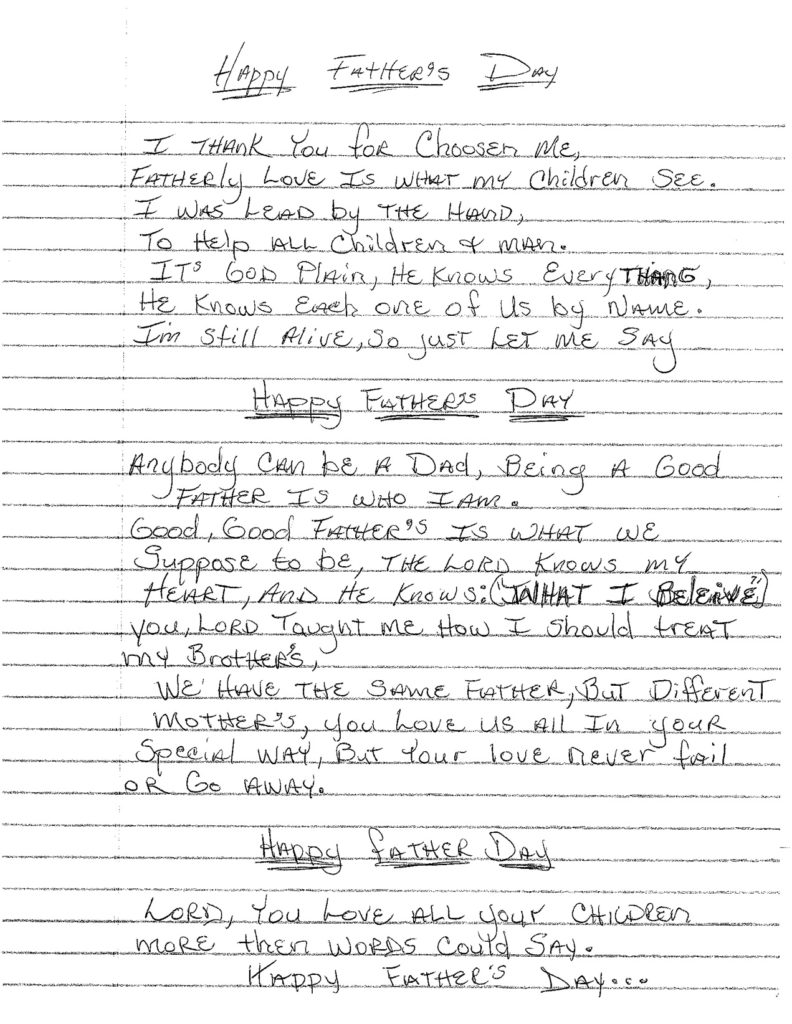 Happy Father's Day
I Thank You for Choosen Me,
Fatherly Love Is what my Children See.
I was Lead by The Hand,
To Help All Children & man.
It's God Plain, He Knows Everythang,
He Knows Each one of Us by Name.
I'm Still Alive, So just Let me Say
Happy Father's Day
Anybody Can be A Dad, Being A Good
Father Is who I Am.
Good, Good Father's Is what we
Suppose to be, The Lord Knows my
Heart, And He Knows: (What I Beleive")
you, Lord Taught me How I Should treat
my Brother's,
We Have The Same Father, But Different
Mother's, you Love us All In your
Special Way, But Your love never fail
or Go Away.
Happy father Day
Lord, You Love All your Children
more then Words Could Say.
Happy Father's Day....